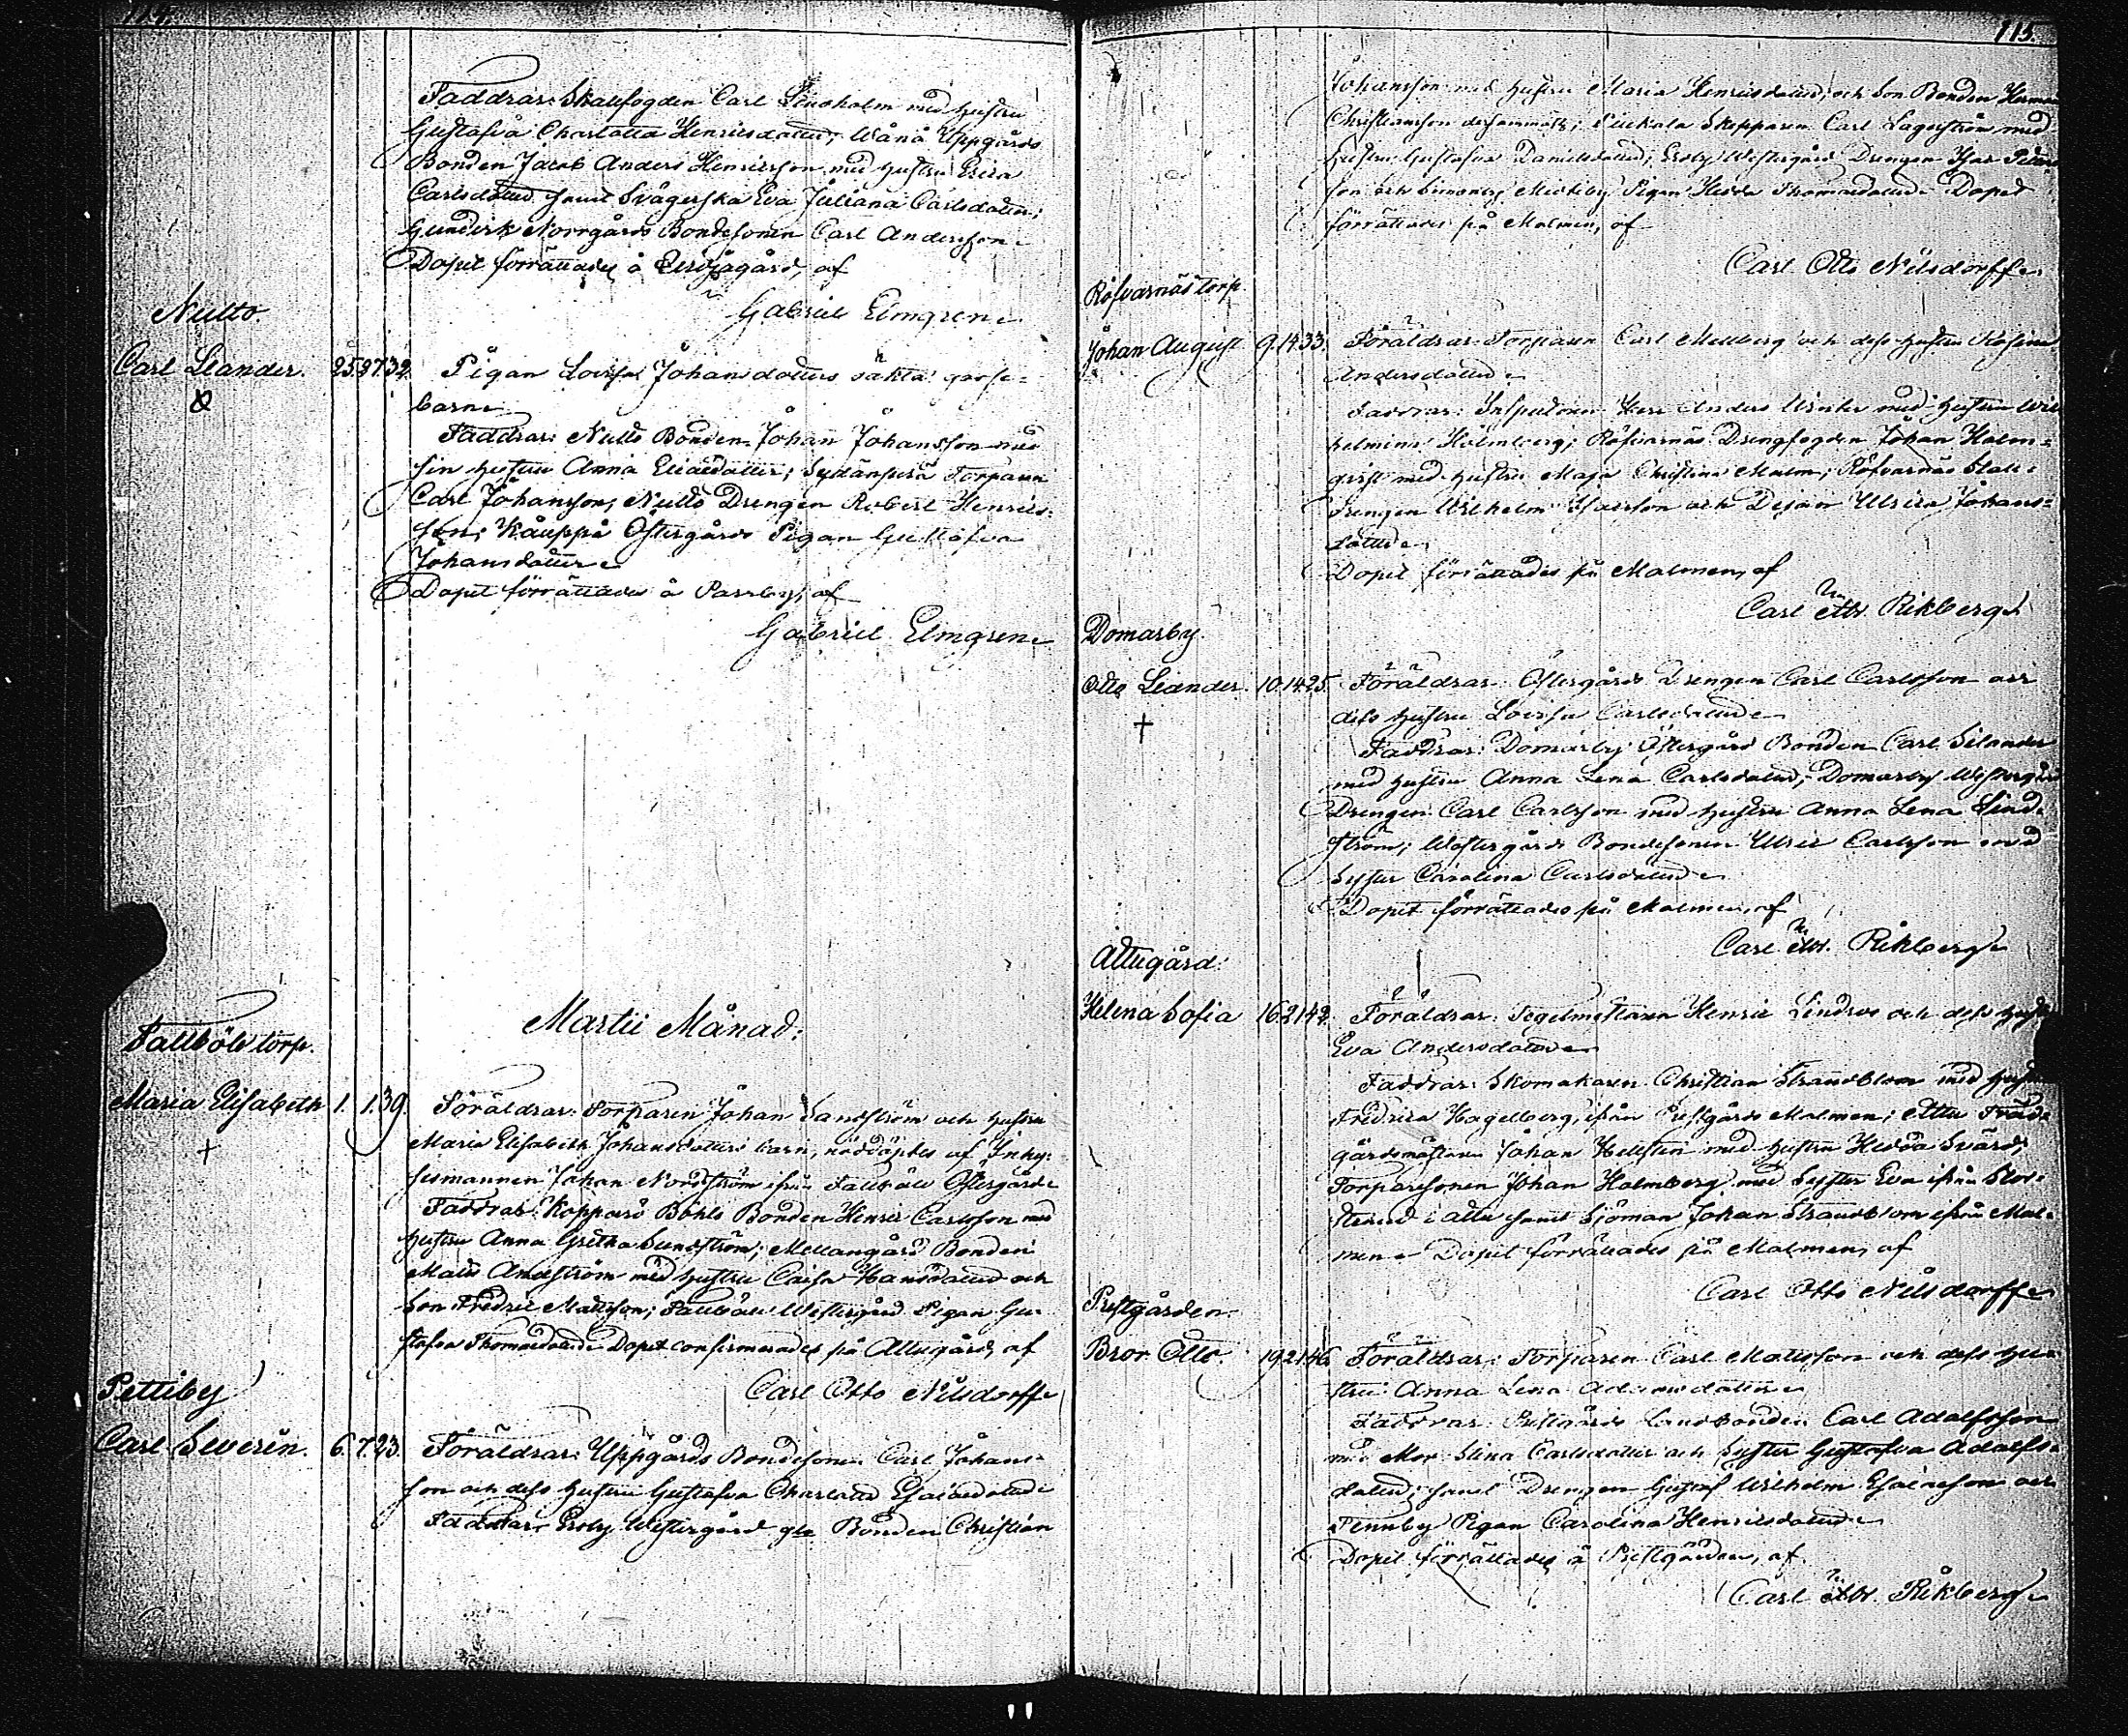 114.
Faddrar: Skallfogden Carl Lindholm med hustru
Gustafva Charlotta Henricsdotter; Wånå Uppgårds
Bonden Jacob Anders Henricsson med hustru Erica
Carlsdotter samt Svägerska Eva Juliana Carlsdotter;
Gundirk Norrgårds Bondesonen Carl Andersson
Dopet förrättades å af
Gabriel Elmgren
Nulto
Carl Leander. 25. 27. 32. Pigan Lovisa Johansdotters oäkta gosse-
barn
Faddrar: Nulto Bonden Johan Johansson med
sin hustru Anna Eliaedotter; Sydänperä Torparen
Carl Johansson, Nulto Drengen Robert Henrics-
son; Kauppå Östergårds Pigan Gustafva
Johansdotter
Dopet förrättades å Parrby, af
Gabriel Elmgren
Martii Månad:
Fallböle torp.
Maria Elisabeth 1. 1. 39. Föräldrar: Torparen Johan Sandström och hustru
Maria Elisabeth Johansdotters barn, nöddöptes af Inhy-
sesmannen Johan Nordström ifrån Fallböle Östergård
Faddrar: Kopparö Böhls Bonden Henric Carlsson med
hustru Anna Gretha Sundström; Mellangård Bonden
Matts Andström med hustru Caisa Hansdotter och
Son Fredric Mattsson; Fallböle Westergård Pigan Gu-
stafva Thomaedotter Dopet confirmerades på Åttugård, af
Carl Otto Nilsdorff
Pettiby
Carl Severin. 6. 7. 23. Föräldrar: Uppgårds Bondesonen Carl Johans-
son och dess hustru Gustafva Charlotta Esaiaedotter
Faddrar: Eroby Westergård gle Bonden Christian
115.
Johansson med hustru Maria Henricsdotter, och Son Bonden Herman
Christiansson dersammast; Skepparen Carl Lagerström med
hustru Gustafva Danielsdotter; Eroby Westergård Drengen Isac Peters-
son och Simonby Pigan Hedda Thomaedotter Dopet
förrättades på Malmen, af
Carl Otto Nilsdorff
Röfvarnäs torp.
Johan August 9. 14. 33. Föräldrar: Torparen Carl Mellberg och dess hustru Rosina
Andersdotter
Faddrar: Inspectoren Herr Anders Winter med hustru Wil-
helmina Holmberg; Röfvarnäs Drengfogden Johan Holm-
qvist med hustru Maja Christina Malm; Röfvarnäs Stall-
drengen Wilhelm Isacsson och Dejan Ulrica Johans-
dotter
Dopet förrättades på Malmen, af
Carl Rikberg
Domarby
Otto Leander. 10. 14. 25. Föräldrar: Östergårds Drengen Carl Carlsson och
dess hustru Lovisa Carlsdotter
Faddrar: Domarby Östergård Bonden Carl Selander
med hustru Anna Lena Carlsdotter; Domarby Westergård
Drengen Carl Carlsson med hustru Anna Lena Lind-
ström; Westergårds Bondesonen Ulric Carlsson med
Syster Carolina Carlsdotter
Dopet förrättades på Malmen, af
Carl Rikberg
Åttugård:
Helena Sofia 16. 21. 42. Föräldrar: Segelmästaren Henric Lindros och dess hustru
Eva Andersdotter
Faddrar: Skomakaren Christian Strandblom med hustru
Fredrica Hagelberg, ifrån Prestgårds Malmen; Åttu Träd-
gårdsmästaren Johan Hellsten med hustru Hedda Svärd;
Torparesonen Johan Holmberg med Syster Eva ifrån Stor-
i Åttu samt Sjöman Johan Strandblom ifrån Mal-
men Dopet förrättades på Malmen, af
Carl Otto Nilsdorff
Prestgården.
Bror Otto. 19. 21. 46. Föräldrar: Torparen Carl Mattsson och dess hu-
stru Anna Lena Adamsdotter
Faddrar: Prestgårds Landbonden Carl Adolfsson
med Mor Stina Carlsdotter och Syster Gustafva Adolfs-
dotter; samt Drengen Gustaf Wilhelm Esaiaesson och
Pennby Pigan Carolina Henricsdotter
Dopet förrättades å Prestgården, af
Carl Rikberg